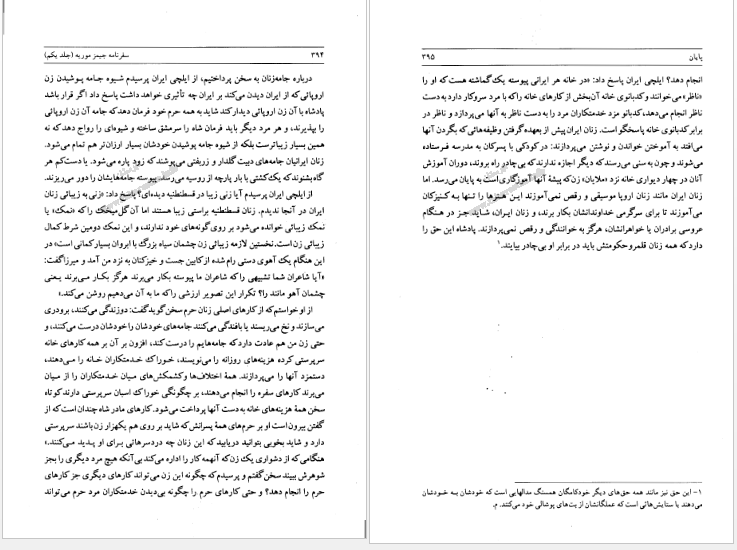 ۳۹۴ سفرنامه جیمز موریه (جلد یکم)
درباره جامه‌زنان به سخن پرداختیم، از ایلچی ایران پرسیدم شیوه جامه پوشیدن زن
اروپائی که از ایران دیدن می‌کند بر ایران چه تأثیری خواهد داشت پاسخ داد اگر قرار باشد
پادشاه با آن زن اروپائی دیدار کند شاید به همه حرم خود فرمان دهد که جامه آن زن اروپائی
را بپذیرند، و هر مرد دیگر باید فرمان شاه را سرمشق ساخته و شیوه‌ای را رواج دهد که نه
همین بسیار زیباترست بلکه از شیوه جامه پوشیدن خودشان بسیار ارزان‌تر هم تمام می‌شود.
زنان ایرانیان جامه‌های دیبت گلدار و زربفتی می‌پوشند که زود پاره می‌شود. یا دست‌کم هر
گاه بشنوند که یک کشتی با بار پارچه از روسیه می‌رسد، پیوسته جامه‌هایشان را دور می‌ریزند.
از ایلچی ایران پرسیدم آیا زنی زیبا در قسطنطنیه دیده‌ای؟ پاسخ داد: «زنی به زیبائی زنان
ایران در آنجا ندیدم. زنان قسطنطنیه براستی زیبا هستند اما آن گل‌میخک را که «نمک» یا
نمک زیبائی خوانده می‌شود بر روی گونه‌های خود ندارند، و این نمک دومین شرط کمال
زیبائی زن است. نخستین لازمه زیبائی زن چشمان سیاه بزرگ با ابروان بسیار کمانی است» در
این هنگام یک آهوی دستی رام شده از کابین جست و خیزکنان به نزد من آمد و میرزا گفت:
«آیا شاعران شما تشبیهی را که شاعران ما پیوسته بکار می‌برند هرگز بکار می‌برند یعنی
چشمان آهو مانند را؟ تکرار این تصویر ارزشی را که ما به آن می‌دهیم روشن می‌کند.»
از او خواستم که از کارهای اصلی زنان حرم سخن گوید گفت: دوزندگی می‌کنند، برودری
می‌سازند و نخ می‌ریسند یا بافندگی می‌کنند جامه‌های خودشان را خودشان درست می‌کنند، و
حتی زن من هم عادت دارد که جامه‌هایم را درست کند، افزون بر آن بر همه کارهای خانه
سرپرستی کرده هزینه‌های روزانه را می‌نویسند، خوراک خدمتکاران خانه را می‌دهند،
دستمزد آنها را می‌پردازند. همهٔ اختلاف‌ها و کشمکش‌های میان خدمتکاران را از میان
می‌برند کارهای سفره را انجام می‌دهند، بر چگونگی خوراک اسبان سرپرستی دارند کوتاه
سخن همهٔ هزینه‌های خانه به دست آنها پرداخت می‌شود. کارهای مادر شاه چندان است که از
گفتن بیرون است او بر حرم‌های همهٔ پسرانش که شاید بر روی هم یکهزار زن باشند سرپرستی
دارد و شاید بخوبی بتوانید دریابید که این زنان چه دردسرهائی برای او پدید می‌کنند.»
هنگامی که از دشواری یک زن که آنهمه کار را اداره می‌کند بی‌آنکه هیچ مرد دیگری را بجز
شوهرش ببیند سخن گفتم و پرسیدم که چگونه این زن می‌تواند کارهای دیگری جز کارهای
حرم را انجام دهد؟ و حتی کارهای حرم را چگونه بی‌دیدن خدمتکاران مرد حرم می‌تواند
پایان ۳۹۵
انجام دهد؟ ایلچی ایران پاسخ داد: «در خانه هر ایرانی پیوسته یک گماشته هست که او را
«ناظر» می‌خوانند و کدبانوی خانه آن‌بخش از کارهای خانه را که با مرد سروکار دارد به دست
ناظر انجام می‌دهد، کدبانو مزد خدمتکاران مرد را به دست ناظر به آنها می‌پردازد و ناظر در
برابر کدبانوی خانه پاسخگو است. زنان ایران پیش از بعهده گرفتن وظیفه‌هائی که بگردن آنها
می‌افتد به آموختن خواندن و نوشتن می‌پردازند: در کودکی با پسرکان به مدرسه فرستاده
می‌شوند و چون به سنی می‌رسند که دیگر اجازه ندارند که بی‌چادر راه بروند، دوران آموزش
آنان در چهار دیواری خانه نزد «ملایان» زن که پیشهٔ آنها آموزگاری است به پایان می‌رسد. اما
زنان ایران مانند زنان اروپا موسیقی و رقص نمی‌آموزند این هنرها را تنها به کنیزکان
می‌آموزند تا برای سرگرمی خداوندانشان بکار برند، و زنان ایران، شاید جز در هنگام
عروسی برادران یا خواهرانشان، هرگز به خوانندگی و رقص نمی‌پردازند. پادشاه این حق را
دارد که همه زنان قلمرو حکومتش باید در برابر او بی‌چادر بیایند.۱
۱- این حق نیز مانند همه حق‌های دیگر خودکامگان همسنگ مدالهایی است که خودشان به خودشان
می‌دهند یا ستایش‌هائی است که عملگانشان از بت‌های پوشالی خود می‌کنند. م.